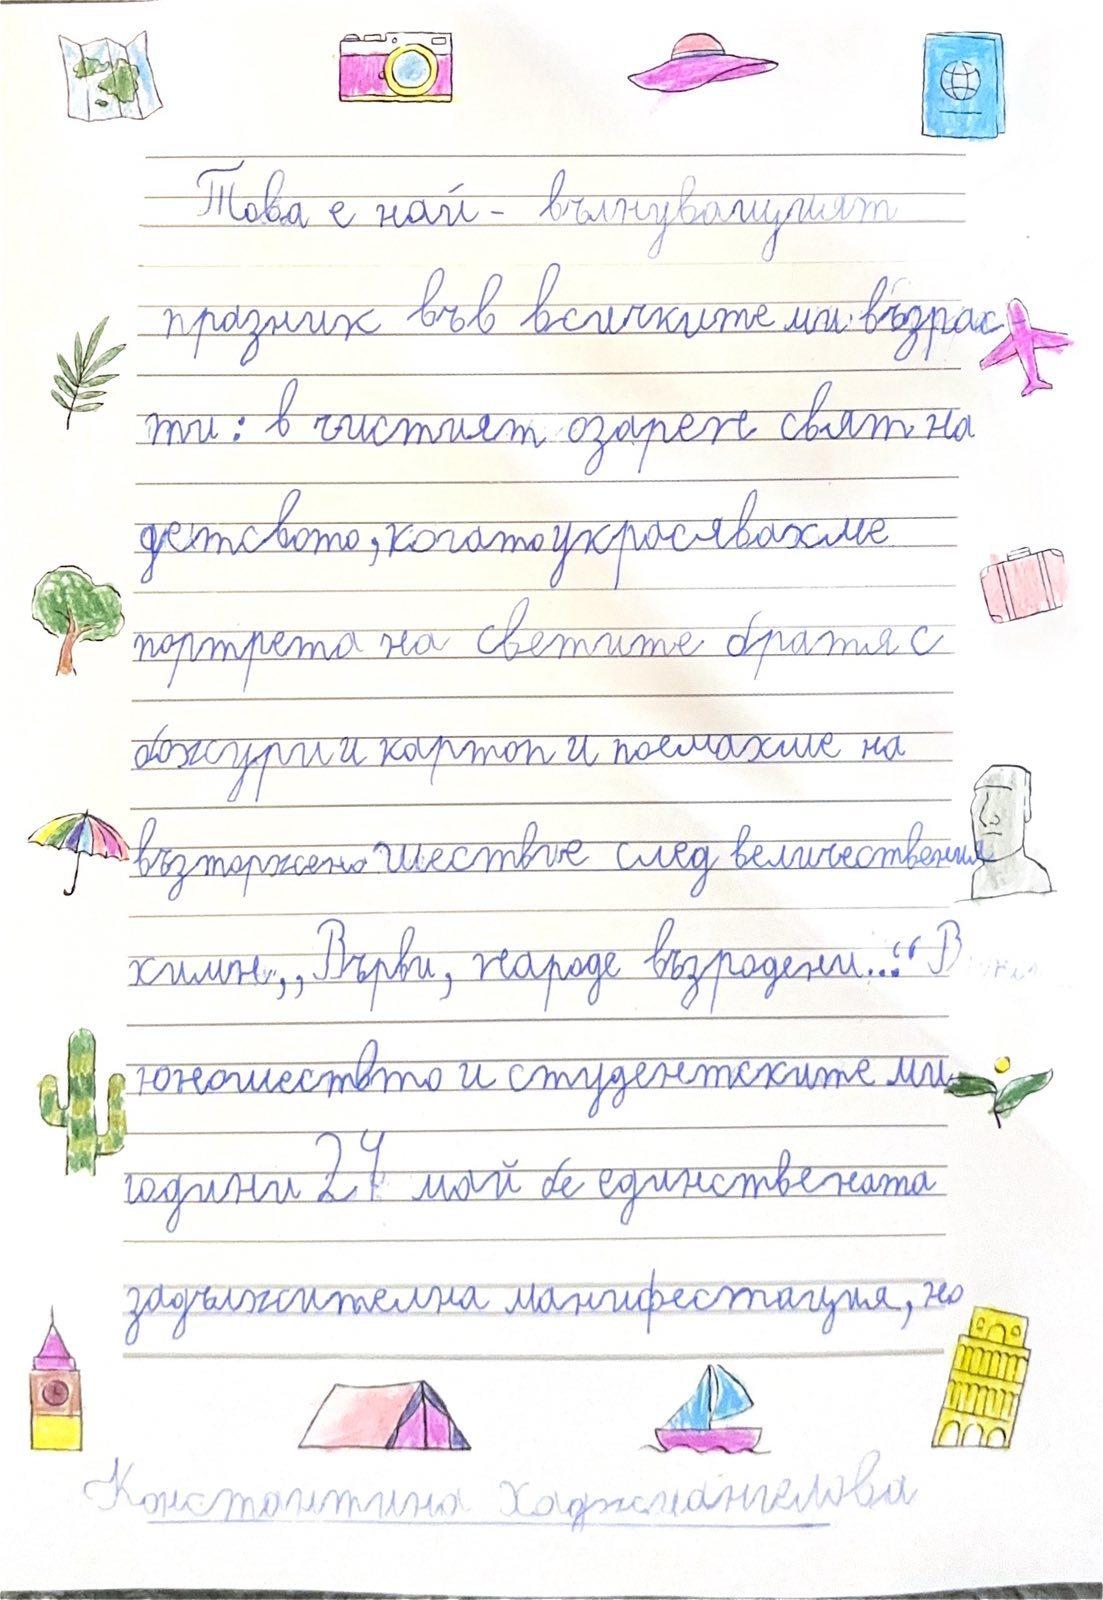 Това е най - вълнуващият
празник във всичките ми възрас
ти: в чистият озарен свят на
детсвото, когато украсявахме
портрета на светите братя с
божури и картон и поемахме на
възторжено шествие след величествения
химн,, Върви, народе възродени..." В
юношеството и студентските ми
години 24 май бе единствената
задължителна манифестация, но
Константина Хаджиангелова